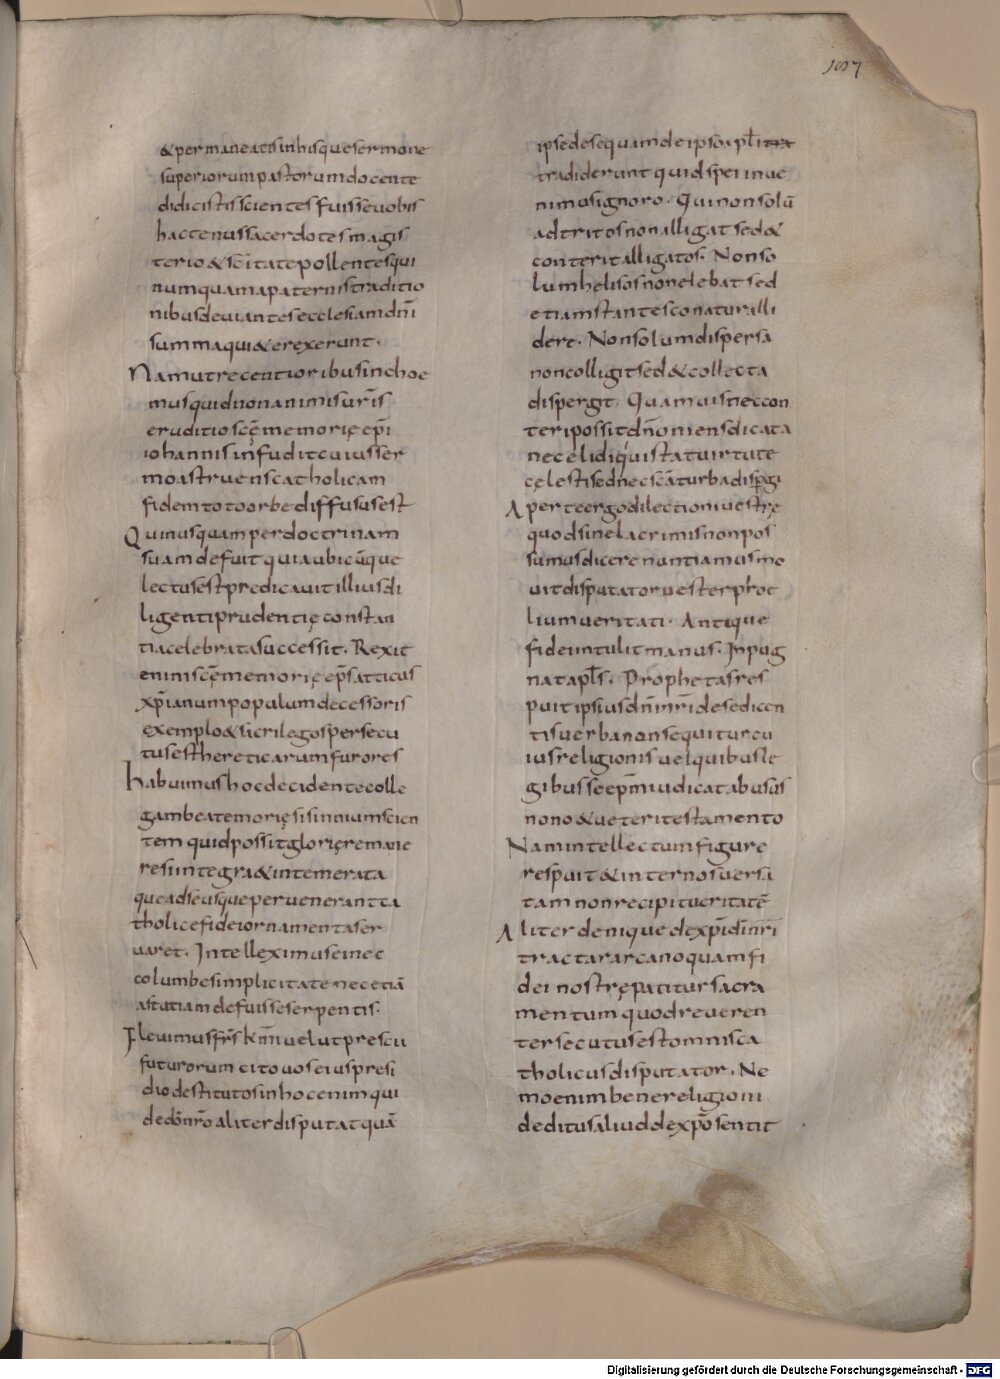 107
& permaneatis in his que sermone
superiorum pastorum docente
didicistis scientes fuisse uobis
hactenus sacerdotes magis
terio & scĩtate pollentes qui
numquam a paternis traditio
nibus deuiantes ecclesiam dñi
summa qui&e rexerunt.
Nam ut recentioribus inchoe
mus quid non animis ur̃is
eruditio scẽ memorię ep̃i
iohannis infudit cuius ser
mo astruens catholicam
fidem toto orbe diffusus est
Qui nusquam per doctrinam
suam defuit quia ubicũque
lectus est predicauit illius di
ligenti prudentię constan
tia celebrata successit. Rexit
enim scẽ memorię ep̃s atticus
xp̃ianum populum decessoris
exemplo & sacrilegos persecu
tus est hereticarum furores
Habuimus hoc decidente colle
gam beate morię sisinnium scien
tem quid possit glorię remane
re si integra & intemerata
que ad se usque peruenerant ca
tholice fidei ornamenta ser
uaret. Intelleximus ei nec
columbe simplicitate nec etiã
astutiam defuisse serpentis.
Fleuimus fr̃s km̃ uelut prescii
futurorum cito uos eius presi
dio destitutos in hoc enim qui
de dõ nr̃o aliter disputat quã
ipse de se quam de ipso apl̃i
tradiderunt quid spei inue
nimus ignoro. Qui non solũ
adtritos non alligat sed &
conterit alligatos. Non so
lum helisos non elebat sed
etiam stantes conatur alli
dere. Non solum dispersa
non colligit sed & collecta
dispergit. Quamuis nec con
teri possit dñoniens dicata
nec elidi quistat uirtute
cęlesti sed nec scãturba disꝑgi
Aperte ergo dilectioni uestrę
quod sine lacrimis non pos
sumus dicere nuntiamus mo
uit disputator uester proe
lium ueritati. Antique
fidei intulit manus. Inpug
nat apl̃s. Prophetas res
puit ipsius dñi nr̃i de se dicen
tis uerba non sequitur cu
ius religionis uel quibus le
gibus se ep̃m iudicat abusus
nouo & ueteri testamento
Nam intellectum figure
respuit & internos uersa
tam non recipit ueritatẽ
Aliter denique de xp̃i dñi nr̃i
tractat arcano quam fi
dei nostrę patitur sacra
mentum quod reueren
ter secutus est omnis ca
tholicus disputator. Ne
mo enim bene religioni
deditus aliud de xp̃o sentit
Digitalisierung gefördert durch die Deutsche Forschungsgemeinschaft - DFG